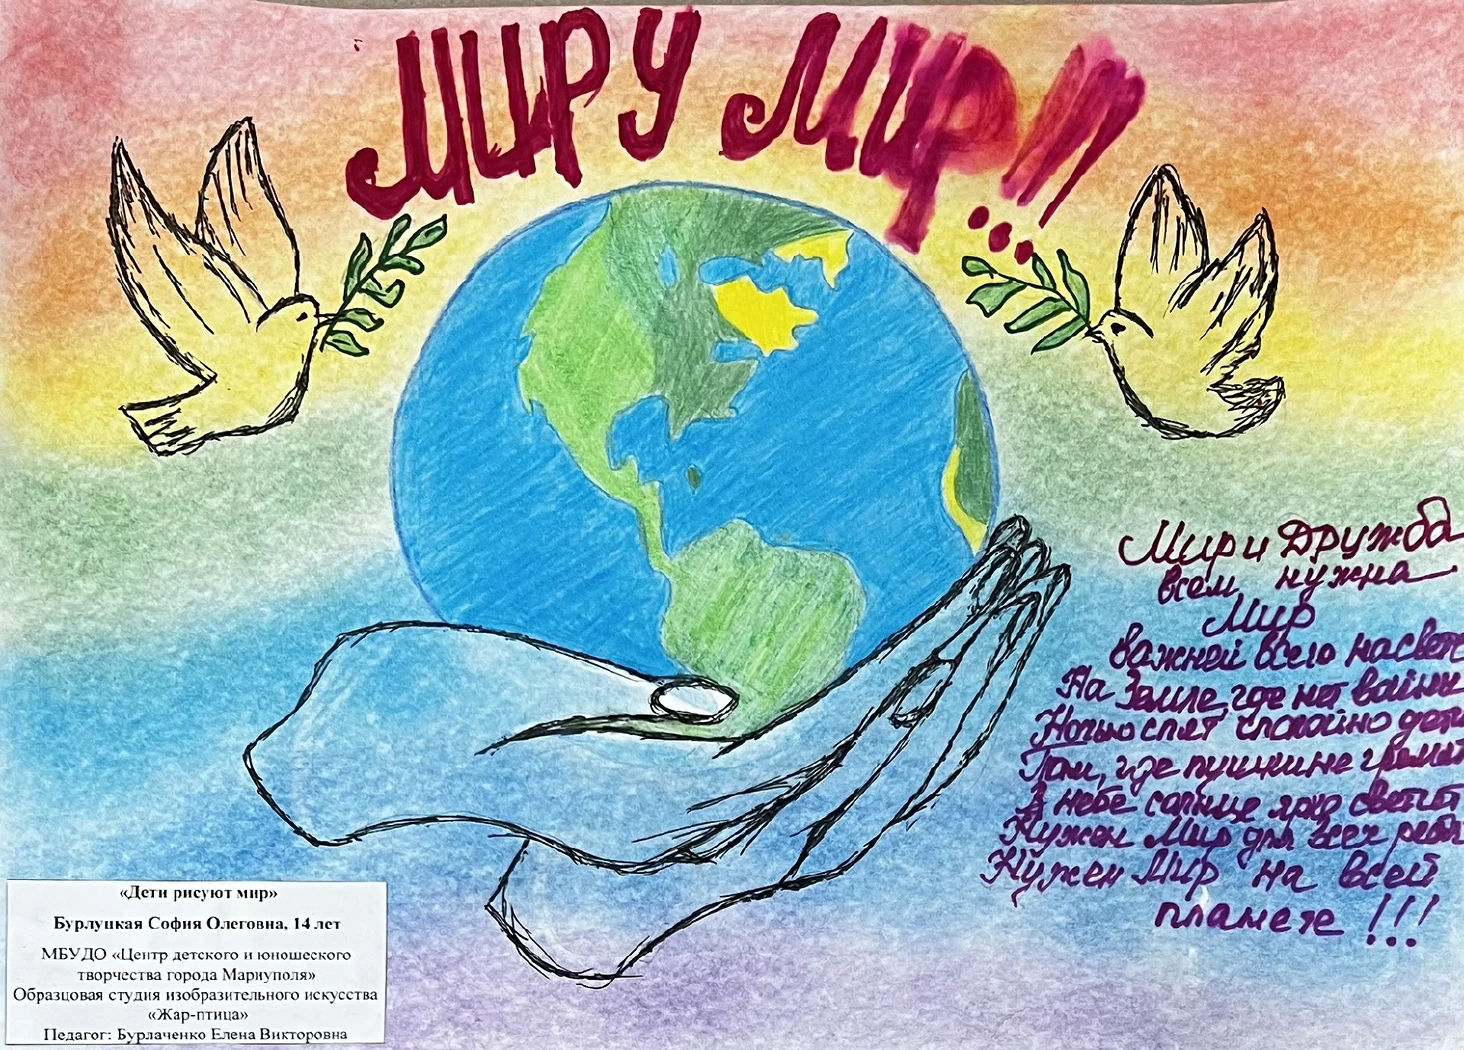 МИРУ МИР!!!...
Мир и Дружба
всем нужна
Мир
важней всего на свете
На Земле, где нет войны
Ночью спят спокойно дети
Там, где пушки не гремят
В небе солнце ярко светит
Нужен Мир для всех ребят
Нужен Мир на всей
планете!!!
«Дети рисуют мир»
Бурлуцкая София Олеговна, 14 лет
МБУДО «Центр детского и юношеского
творчества города Мариуполя»
Образцовая студия изобразительного искусства
«Жар-птица»
Педагог: Бурлаченко Елена Викторовна